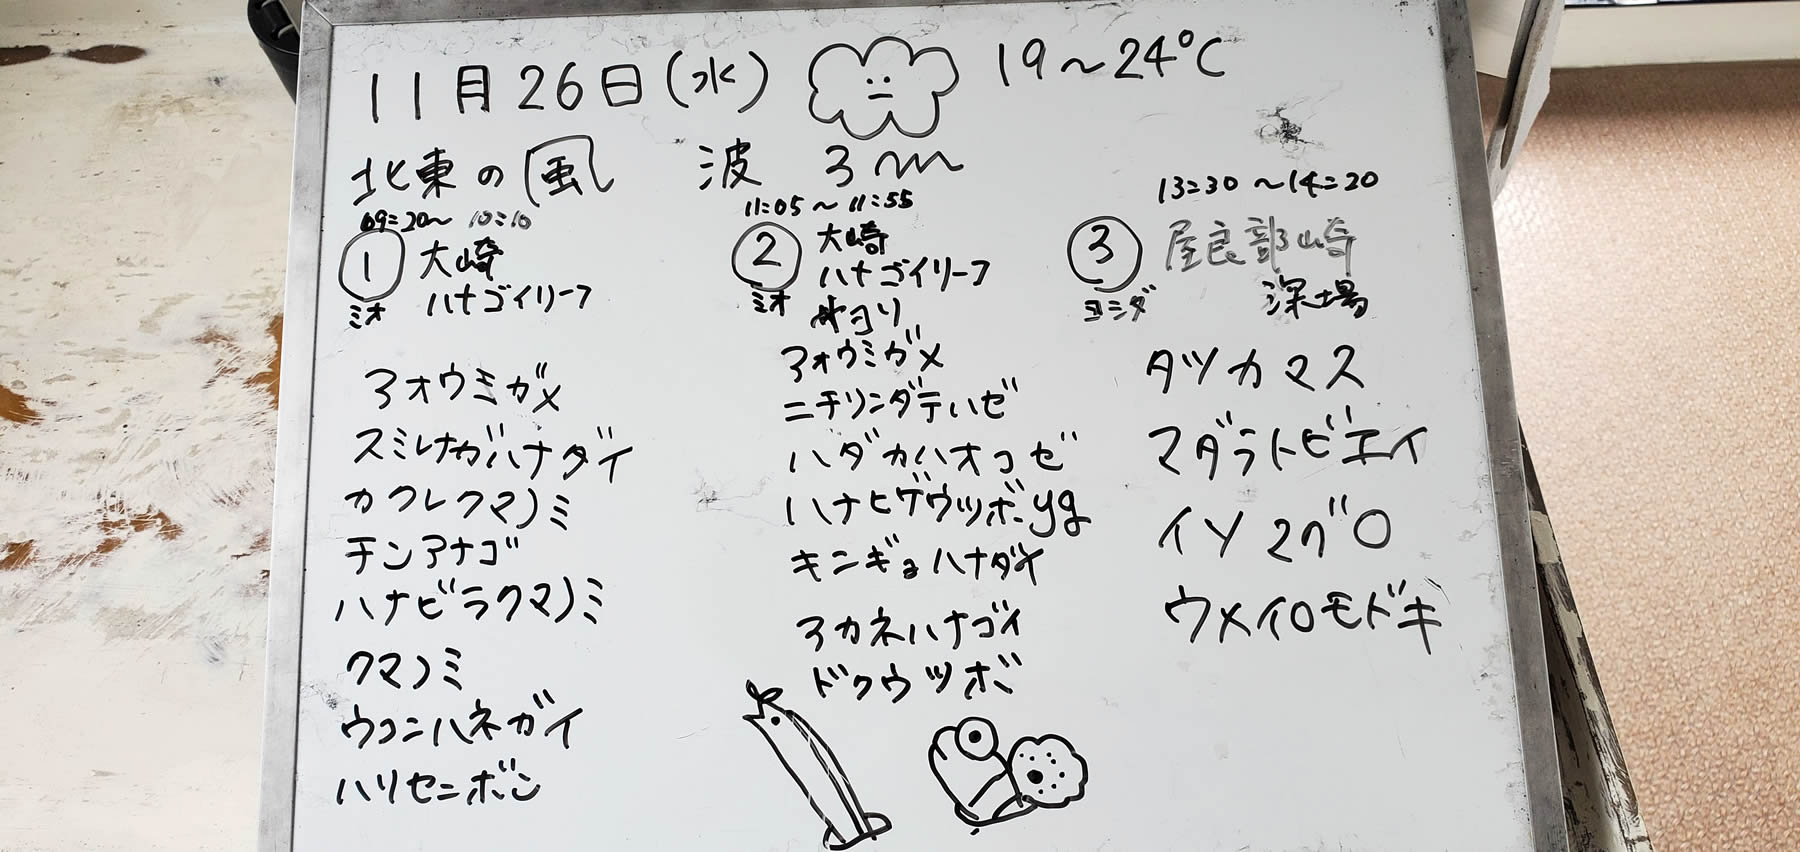 11月26日(水) 19～24℃
北東の風 波 3m
09:20～10:10
① 大崎
ハナゴイリーフ
ミオ
アオウミガメ
スミレナガハナダイ
カクレクマノミ
チンアナゴ
ハナビラクマノミ
クマノミ
ウコンハネガイ
ハリセンボン
11:05～11:55
② 大崎
ハナゴイリーフ
ミオ
アオウミガメ
ニチリンダテハゼ
ハダカハオコゼ
ハナヒゲウツボyg
キンギョハナダイ
アカネハナゴイ
ドクウツボ
13:30～14:20
③ 屋良部崎
深場
ヨシダ
タツカマス
マダラトビエイ
イソマグロ
ウメイロモドキ